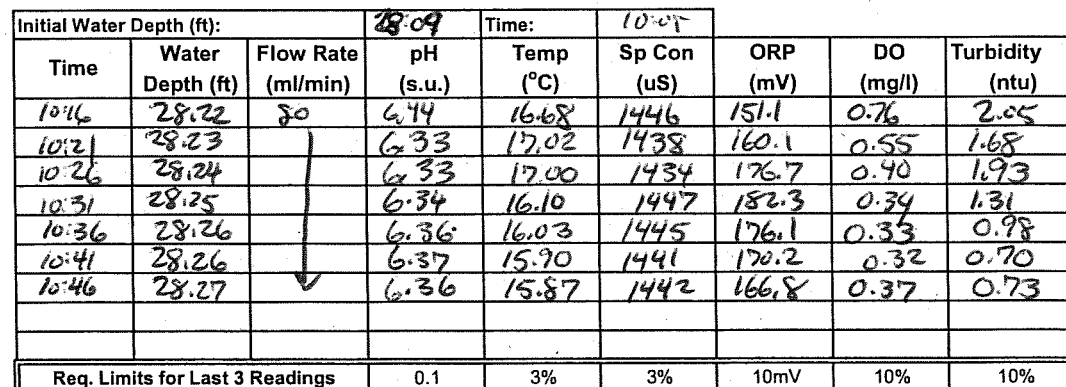 Initial Water Depth (ft): 28.09 Time: 10:05
Time Water Depth (ft) Flow Rate (ml/min) pH (s.u.) Temp (°C) Sp Con (uS) ORP (mV) DO (mg/l) Turbidity (ntu)
10:16 28.22 80 6.44 16.68 1446 151.1 0.76 2.05
10:21 28.23 6.33 17.02 1438 160.1 0.55 1.68
10:26 28.24 6.33 17.00 1434 176.7 0.40 1.93
10:31 28.25 6.34 16.10 1447 182.3 0.34 1.31
10:36 28.26 6.36 16.03 1445 176.1 0.33 0.98
10:41 28.26 6.37 15.90 1441 170.2 0.32 0.70
10:46 28.27 6.36 15.87 1442 166.8 0.37 0.73
Req. Limits for Last 3 Readings 0.1 3% 3% 10mV 10% 10%